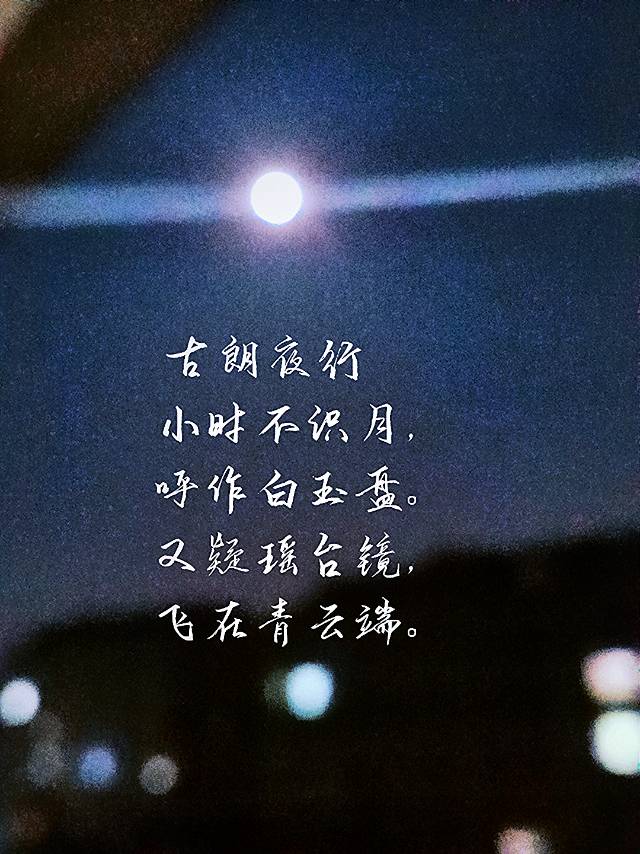 古朗夜行
小时不识月，
呼作白玉盘。
又疑瑶台镜，
飞在青云端。